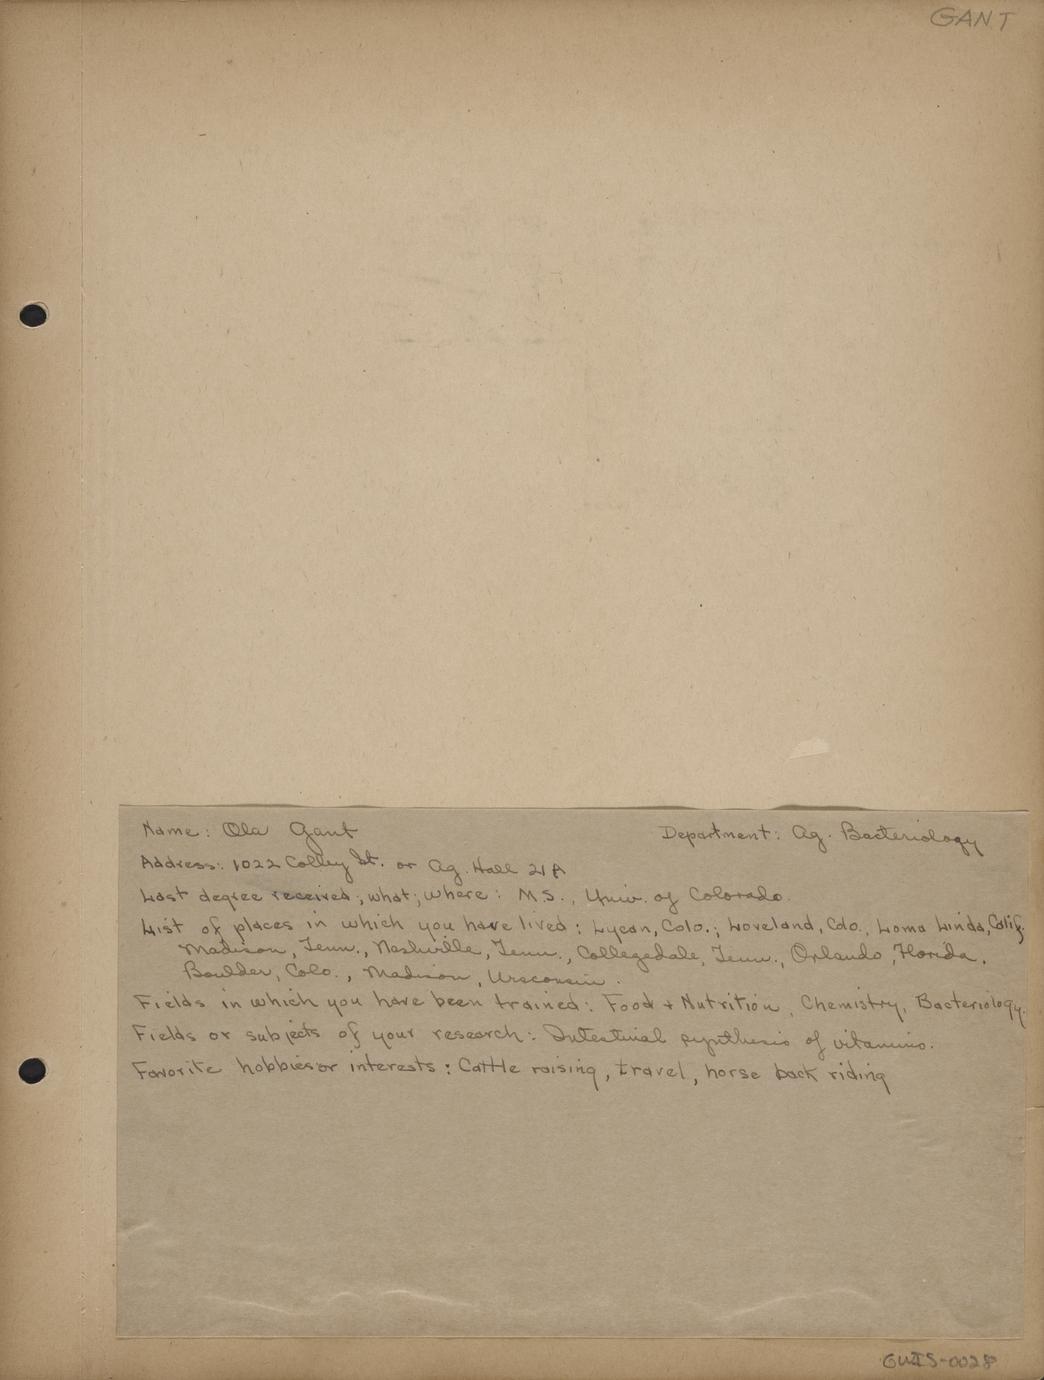 GANT
Name: Ola Gant Department: Ag. Bacteriology
Address: 1022 Colley St. or Ag. Hall 21A
Last degree received; what; where: M.S., Univ. of Colorado.
List of places in which you have lived: Lycan, Colo.; Loveland, Colo., Loma Linda, Calif.
Madison, Tenn., Nashville, Tenn., Collegedale, Tenn., Orlando, Florida,
Boulder, Colo., Madison, Wisconsin.
Fields in which you have been trained: Food + Nutrition, Chemistry, Bacteriology.
Fields or subjects of your research: Intestinal synthesis of vitamins.
Favorite hobbies or interests: Cattle raising, travel, horse back riding
GWIS-0028